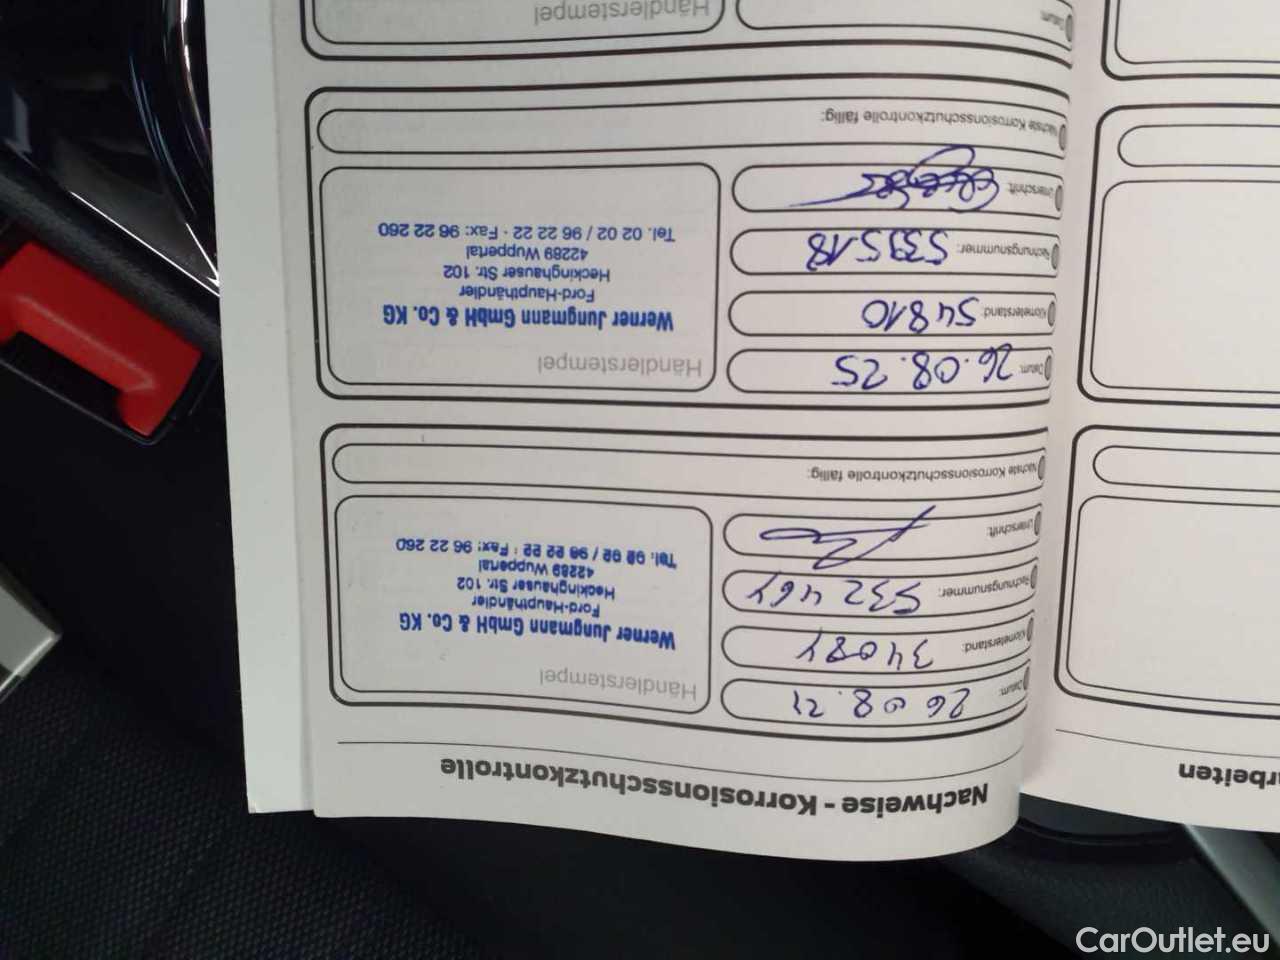 Nachweise - Korrosionsschutzkontrolle
Datum:
Händlerstempel
Kilometerstand:
Werner Jungmann GmbH & Co. KG
Ford-Haupthändler
Heckinghauser Str. 102
42289 Wuppertal
Tel. 02 02 / 96 22 22 · Fax: 96 22 260
Rechnungsnummer:
Unterschrift:
Nächste Korrosionsschutzkontrolle fällig:
Datum: 26.08.25
Händlerstempel
Kilometerstand: 54810
Werner Jungmann GmbH & Co. KG
Ford-Haupthändler
Heckinghauser Str. 102
42289 Wuppertal
Tel. 02 02 / 96 22 22 · Fax: 96 22 260
Rechnungsnummer: 539518
Unterschrift:
Nächste Korrosionsschutzkontrolle fällig:
Datum:
Händlerstempel
rbeiten
CarOutlet.eu